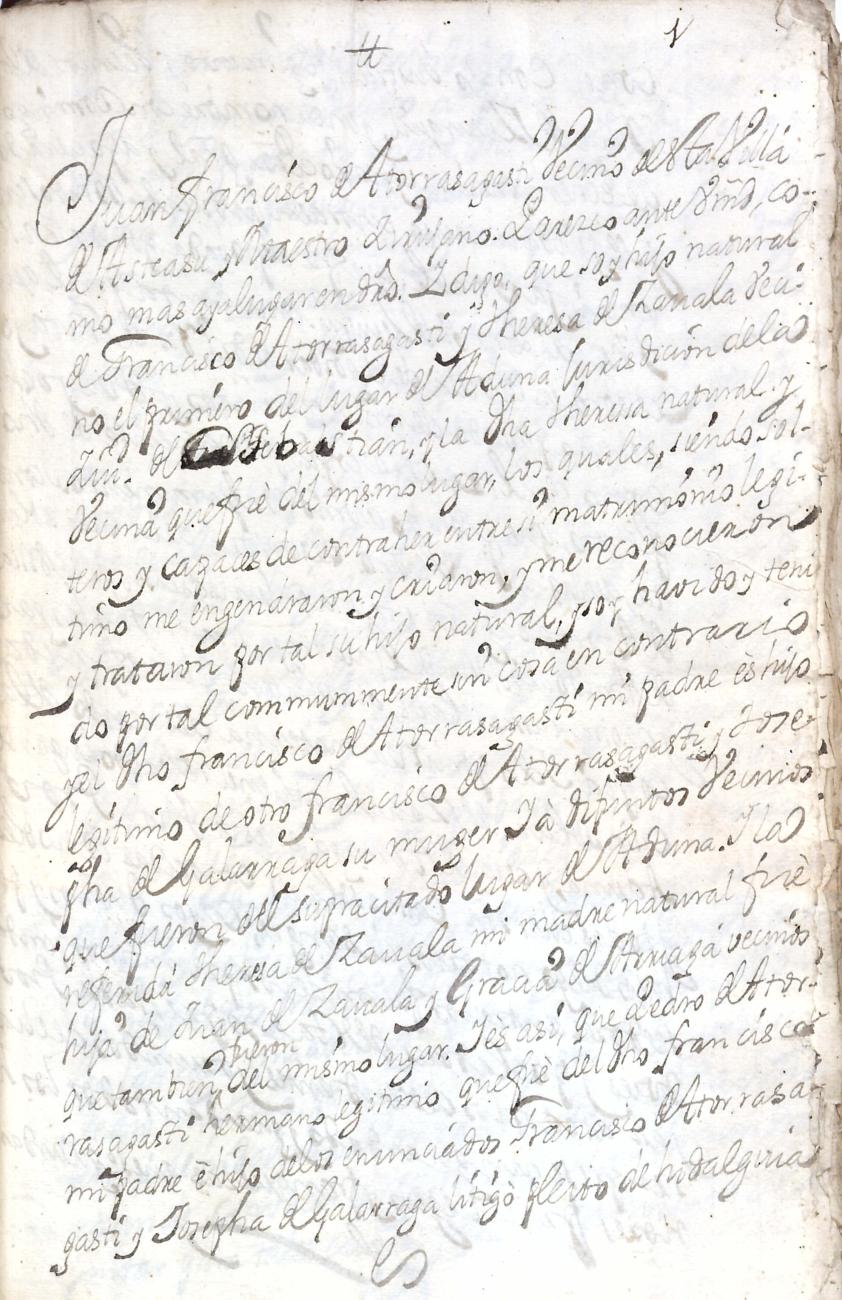 1
Juan francisco de Atorrasagasti Vecino de esta Villa
de Asteasu y Maestro Zirujano. Parezco ante Vmd, co-
mo mas aya lugar en dro. Y digo, que soy hijo natural
de Francisco de Atorrasagasti y theresa de Zauala Veci-
no el primero del lugar de Aduna Jurisdicion de la
Ziud. de Sn Sebastian, y la dha theresa natural y
Vecina que fuè del mismo lugar, los quales, siendo sol-
teros y capaces de contraher entre si matrimonio legi-
timo me engendraron y criaron, y me reconocieron
y trataron por tal su hijo natural, y soy havido y teni
do por tal communmente sin cosa en contrario
y el dho francisco de Atorrasagasti mi padre ès hijo
legitimo de otro francisco de Atorrasagasti y Jose-
pha de Galarraga su muger Ya difuntos Vecinos
que fueron del supracitado lugar de Aduna. Y la
referida theresa de Zauala mi madre natural fuè
hija de Juan de Zauala y Gracia de Arriaga vecinos
que tambien fueron del mismo lugar. Y ès asi, que Pedro de Ator-
rasagasti hermano legitimo que fuè del dho francisco
mi padre è hijo de los enunciados Francisco de Atorrasa-
gasti y Josepha de Galarraga litigò pleito de hidalguia